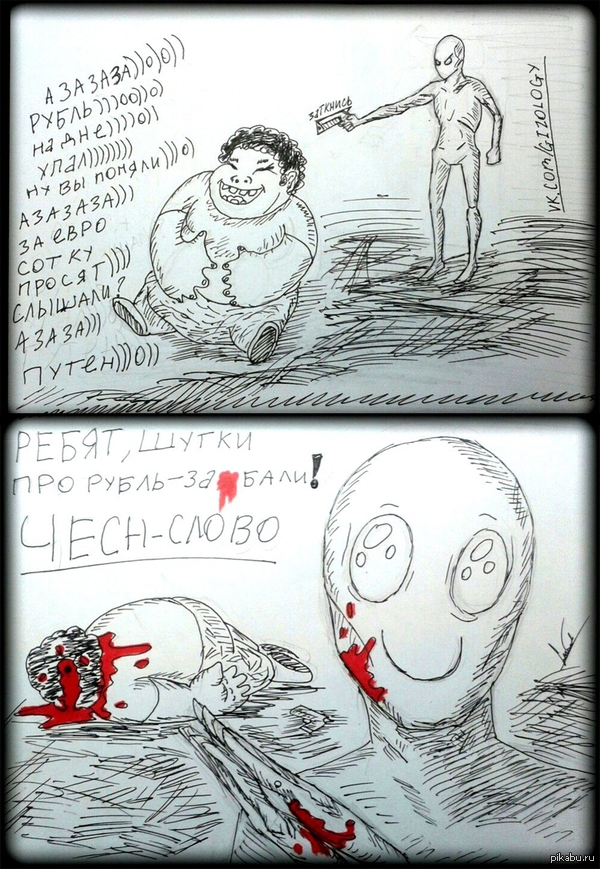 АЗАЗАЗА))0)0))
РУБЛЬ)))00))0)
НА ДНЕ))))0))
УПАЛ))))))))
НУ ВЫ ПОНЯЛИ)))0)
АЗАЗАЗА)))
ЗА ЕВРО
СОТКУ
ПРОСЯТ))))
СЛЫШАЛИ?
АЗАЗА)))
ПУТЕН)))0))
ЗАТКНИСЬ
VK.COM/GIZOLOGY
РЕБЯТ, ШУТКИ
ПРО РУБЛЬ-ЗА БАЛИ!
ЧЕСН-СЛОВО
pikabu.ru